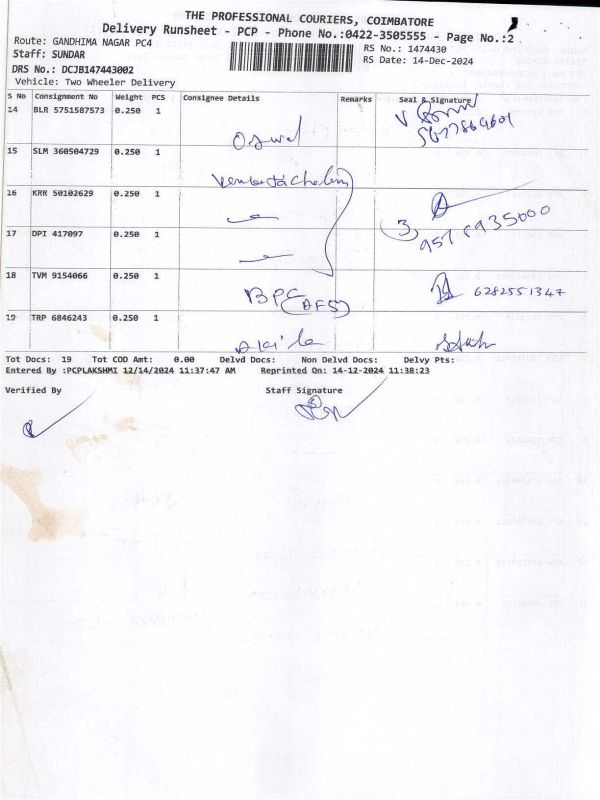 THE PROFESSIONAL COURIERS, COIMBATORE
Delivery Runsheet - PCP - Phone No.:0422-3505555 - Page No.:2
Route: GANDHIMA NAGAR PC4
RS No.: 1474430
Staff: SUNDAR
RS Date: 14-Dec-2024
DRS No.: DCJB147443002
Vehicle: Two Wheeler Delivery
S No Consignment No Weight PCS Consignee Details Remarks Seal & Signature
14 BLR 5751587573 0.250 1
15 SLM 360504729 0.250 1
Venkatachalam
16 KRR 50102629 0.250 1
17 DPI 417097 0.250 1
18 TVM 9154066 0.250 1
BPC (AFS) 6282551347
19 TRP 6846243 0.250 1
Akila
Tot Docs: 19 Tot COD Amt: 0.00 Delvd Docs: Non Delvd Docs: Delvy Pts:
Entered By :PCPLAKSHMI 12/14/2024 11:37:47 AM Reprinted On: 14-12-2024 11:38:23
Verified By Staff Signature